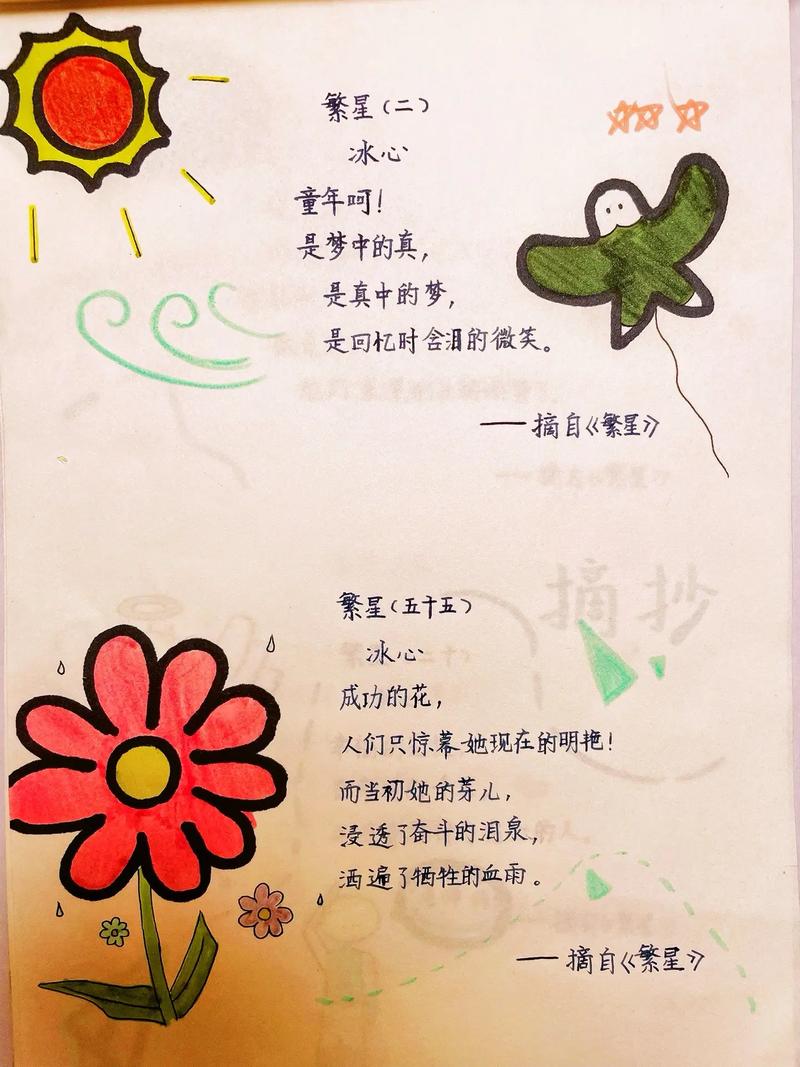 繁星（二）
冰心
童年呵！
是梦中的真，
是真中的梦，
是回忆时含泪的微笑。
——摘自《繁星》
摘抄
繁星（五十五）
冰心
成功的花，
人们只惊慕她现在的明艳！
而当初她的芽儿，
浸透了奋斗的泪泉，
洒遍了牺牲的血雨。
——摘自《繁星》